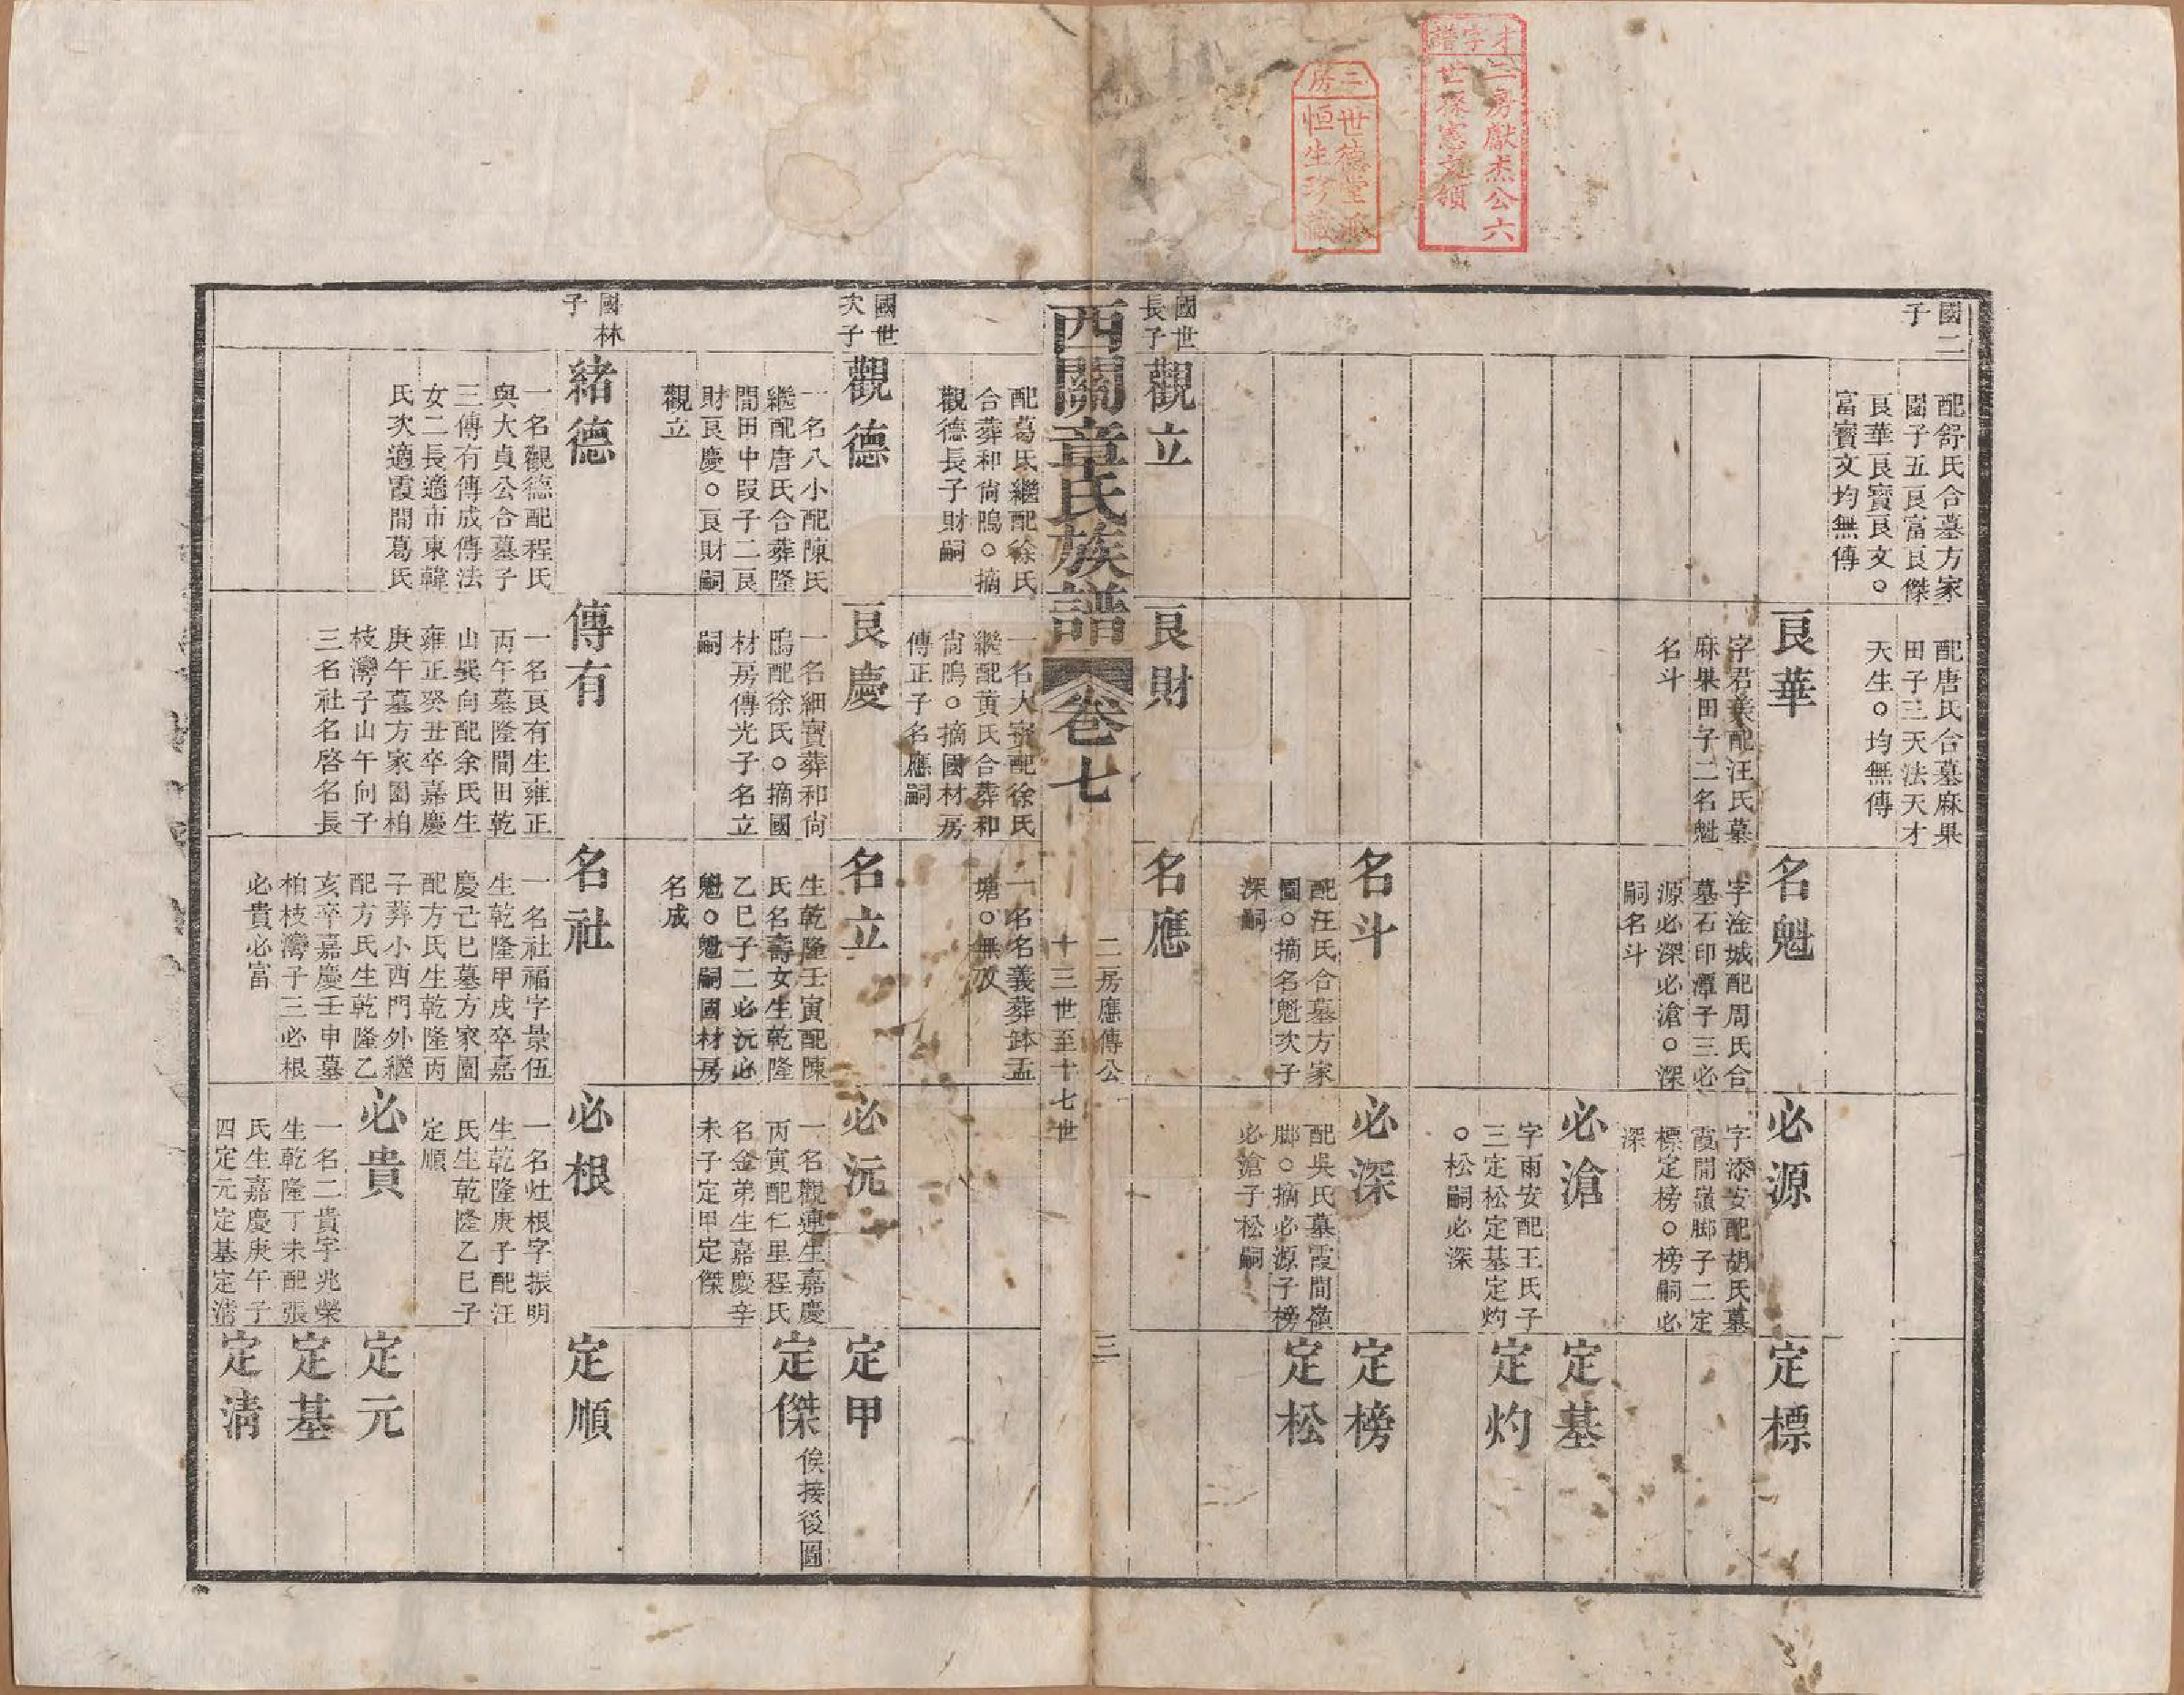 才字譜
二房獻杰公六
世孫憲文領
三房
世德堂派
恒生珍藏
國二
子
配舒氏合墓方家
園子五良富良傑
良華良寶良文○
富寶文均無傳
配唐氏合墓麻果
田子三天法天才
天生○均無傳
良華
字君美配汪氏墓
麻果田子二名魁
名斗
名魁
字淦城配周氏合
墓石印潭子三必
源必深必滄○深
嗣名斗
必源
字添安配胡氏墓
霞間嶺脚子二定
標定榜○榜嗣必
深
定標
必滄
字雨安配王氏子
三定松定基定灼
○松嗣必深
定基
定灼
名斗
配汪氏合墓方家
園○摘名魁次子
深嗣
必深
配吳氏墓霞間嶺
脚○摘必源子榜
必滄子松嗣
定榜
定松
國世
長子
觀立
良財
名應
西關章氏族譜
卷七
二房應傳公
十三世至十七世
三
配葛氏繼配徐氏
合葬和尙隝○摘
觀德長子財嗣
一名大寶配徐氏
繼配黃氏合葬和
尙隝○摘國材房
傳正子名應嗣
一名名義葬鉢盂
塘○無攷
國世
次子
觀德
一名八小配陳氏
繼配唐氏合葬隆
間田中段子二良
財良慶○良財嗣
觀立
良慶
一名細寶葬和尙
隝配徐氏○摘國
材房傳光子名立
嗣
名立
生乾隆壬寅配陳
氏名壽女生乾隆
乙巳子二必沅必
魁○魁嗣國材房
名成
必沅
一名觀連生嘉慶
丙寅配仁里程氏
名金弟生嘉慶辛
未子定甲定傑
定甲
定傑
俟接後圖
國林
子
緒德
一名觀德配程氏
與大貞公合墓子
三傳有傳成傳法
女二長適市東韓
氏次適霞間葛氏
傳有
一名良有生雍正
丙午墓隆間田乾
山巽向配余氏生
雍正癸丑卒嘉慶
庚午墓方家園柏
枝灣子山午向子
三名社名啓名長
名社
一名社福字景伍
生乾隆甲戌卒嘉
慶己巳墓方家園
配方氏生乾隆丙
子葬小西門外繼
配方氏生乾隆乙
亥卒嘉慶壬申墓
柏枝灣子三必根
必貴必富
必根
一名灶根字振明
生乾隆庚子配汪
氏生乾隆乙巳子
定順
定順
必貴
一名二貴字兆榮
生乾隆丁未配張
氏生嘉慶庚午子
四定元定基定淸
定元
定基
定淸